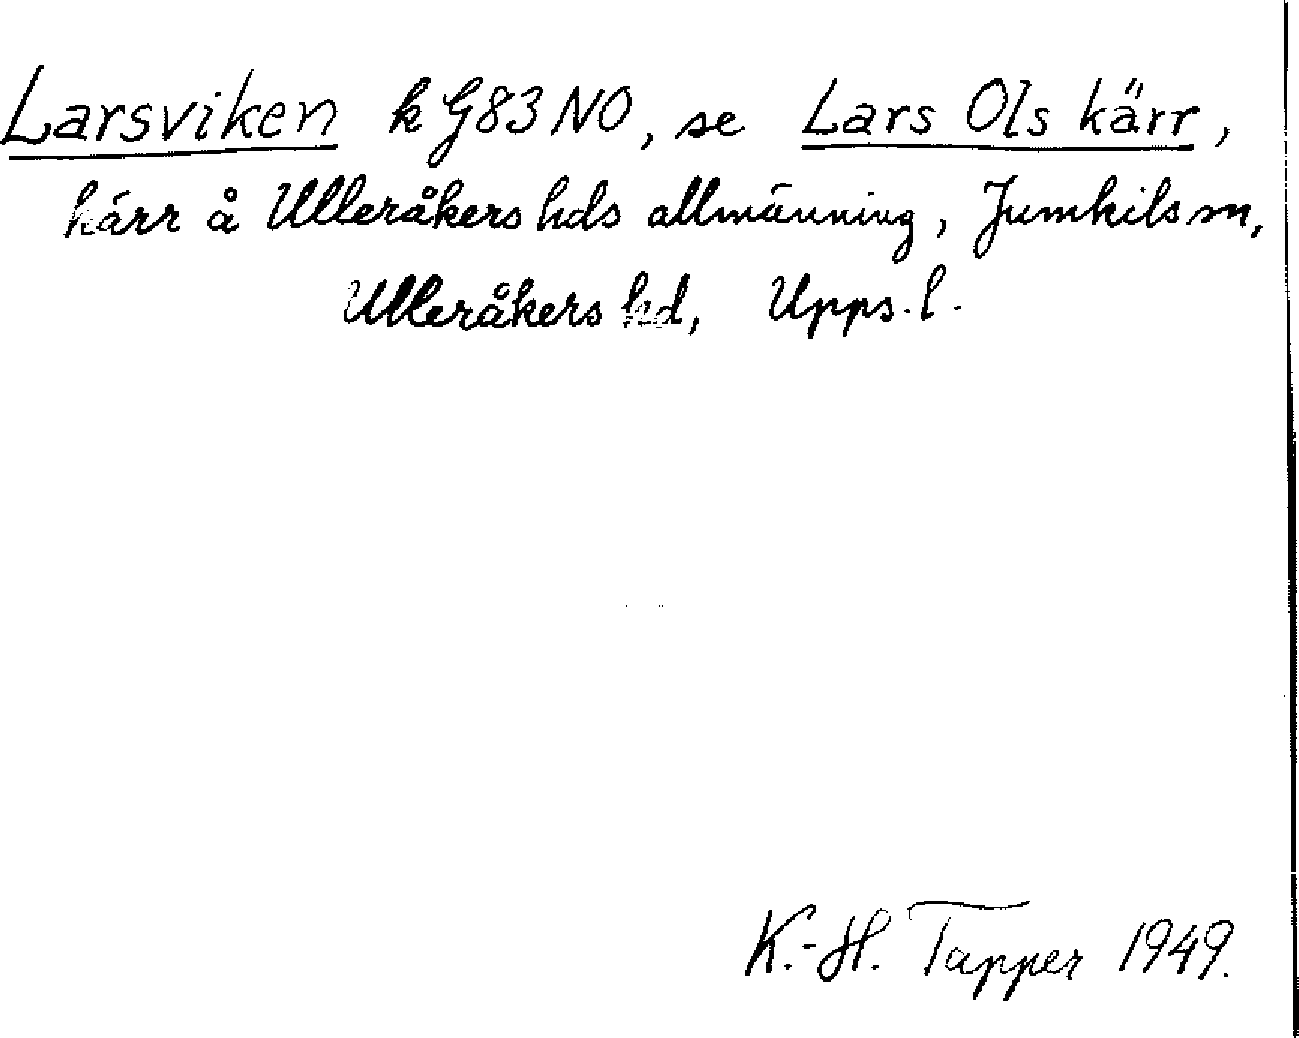 Larsviken k G83NO, se Lars Ols kärr,
kärr å Ulleråkers hds allmänning, Jumkils sn,
Ulleråkers hd, Upps. l.
K.-H. Tapper 1949.